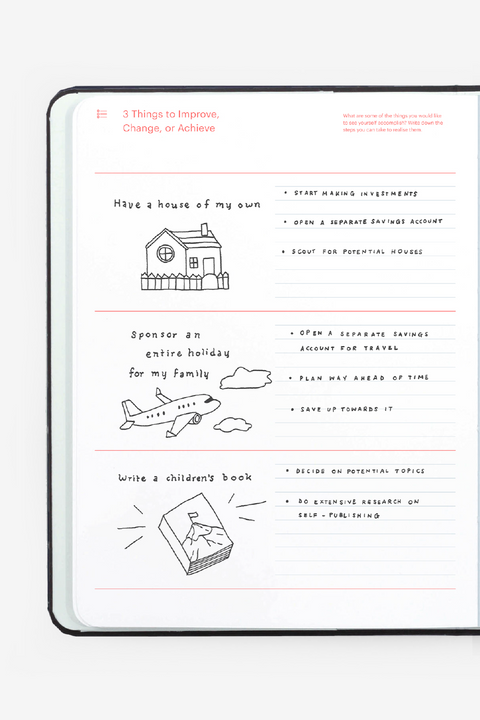 3 Things to Improve,
Change, or Achieve
What are some of the things you would like
to see yourself accomplish? Write down the
steps you can take to realise them.
Have a house of my own
• START MAKING INVESTMENTS
• OPEN A SEPARATE SAVINGS ACCOUNT
• SCOUT FOR POTENTIAL HOUSES
Sponsor an
entire holiday
for my family
• OPEN A SEPARATE SAVINGS
ACCOUNT FOR TRAVEL
• PLAN WAY AHEAD OF TIME
• SAVE UP TOWARDS IT
Write a children's book
• DECIDE ON POTENTIAL TOPICS
• DO EXTENSIVE RESEARCH ON
SELF-PUBLISHING